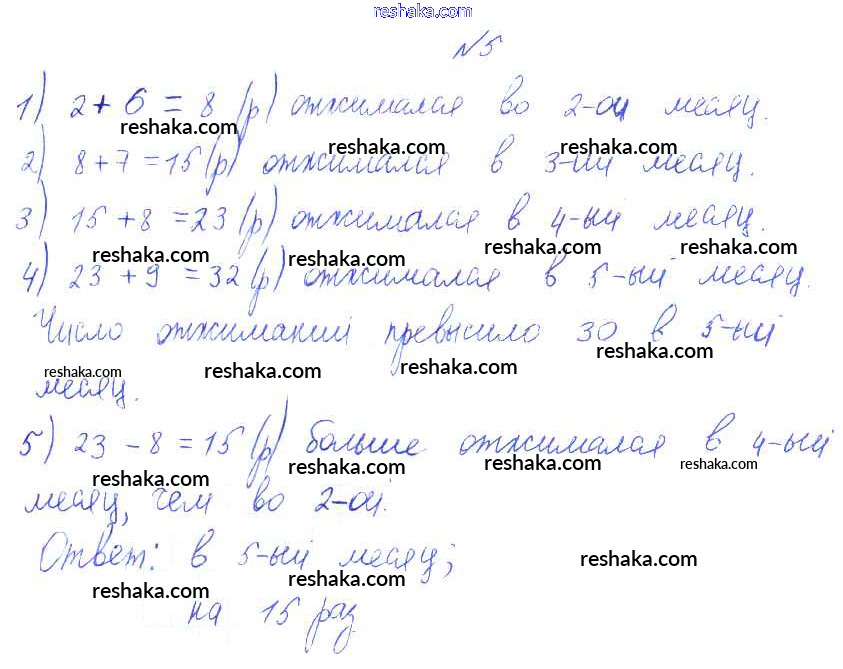 reshaka.com
№5
1) 2+6=8 (р) отжимался во 2-ой месяц.
reshaka.com reshaka.com reshaka.com
2) 8+7=15 (р) отжимался в 3-ий месяц.
3) 15+8=23 (р) отжимался в 4-ый месяц.
reshaka.com reshaka.com reshaka.com reshaka.com
4) 23+9=32 (р) отжимался в 5-ый месяц.
Число отжиманий превысило 30 в 5-ый
reshaka.com reshaka.com reshaka.com reshaka.com
месяц.
5) 23-8=15 (р) больше отжимался в 4-ый
reshaka.com reshaka.com reshaka.com reshaka.com
месяц, чем во 2-ой.
Ответ: в 5-ый месяц;
reshaka.com reshaka.com reshaka.com
на 15 раз